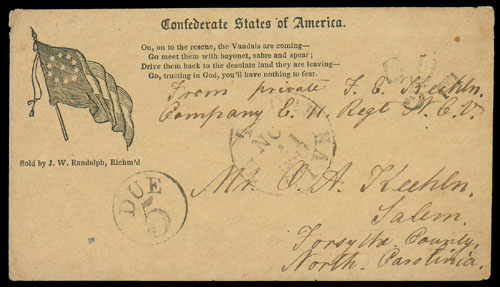 Confederate States of America.
On, on to the rescue, the Vandals are coming—
Go meet them with bayonet, sabre and spear;
Drive them back to the desolate land they are leaving—
Go, trusting in God, you'll have nothing to fear.
From private F. C. Keehln.
Company E. 11. Regt N. C. V.
Sold by J. W. Randolph, Richm'd
DUE
5
Mr. O. A. Keehln.
Salem.
Forsythe County,
North Carolinia.